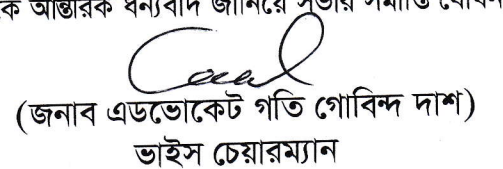 আন্তরিক ধন্যবাদ জানিয়ে সভার সমাপ্তি
(জনাব এডভোকেট গতি গোবিন্দ দাশ)
ভাইস চেয়ারম্যান